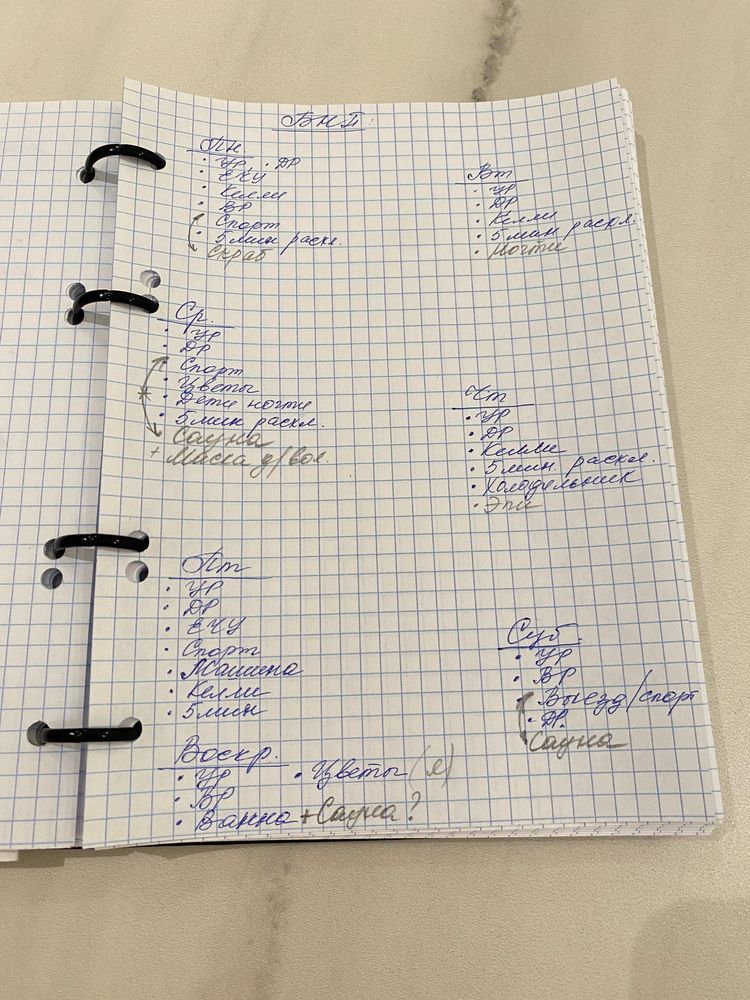 БНП:
Пн.
• УР • ДР
• ЕЧУ
• Келли
• ВР
• Спорт
• 5 мин расхл.
• Скраб
Вт
• УР
• ДР
• Келли
• 5 мин расхл.
• Ногти
Ср.
• УР
• ДР
• Спорт
• Цветы
* • Дети ногти
• 5 мин расхл.
Сауна
+ Маска д/вол.
Чт
• УР
• ДР
• Келли
• 5 мин. расхл.
• Холодельник
• Эпи
Пт
• УР
• ДР
• ЕЧУ
• Спорт
• Машина
• Келли
• 5 мин
Суб.
• УР
• ВР
• Выезд/спорт
• ДР.
Сауна
Воскр.
• УР • Цветы (я)
• ВР
• Ванна + Сауна?